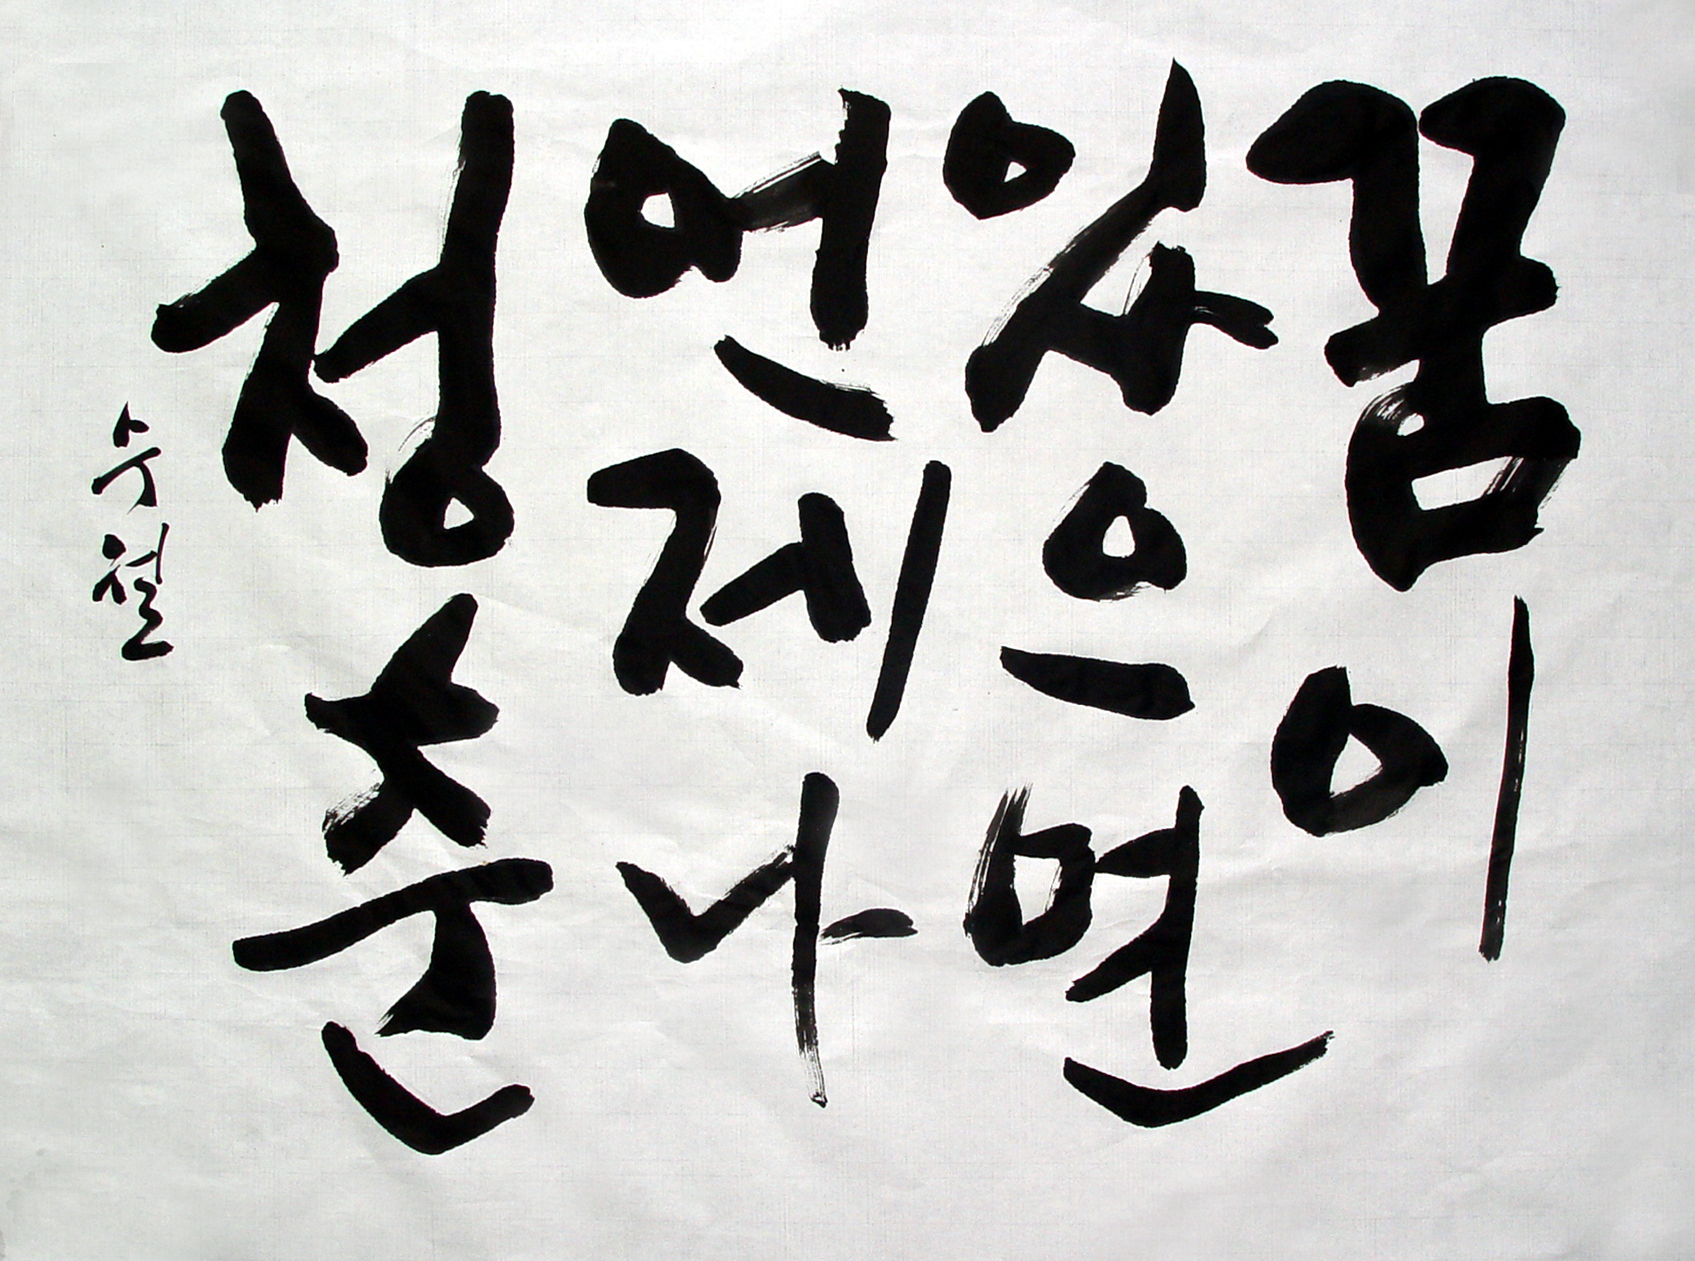 꿈이
있으면
언제나
청춘
수월